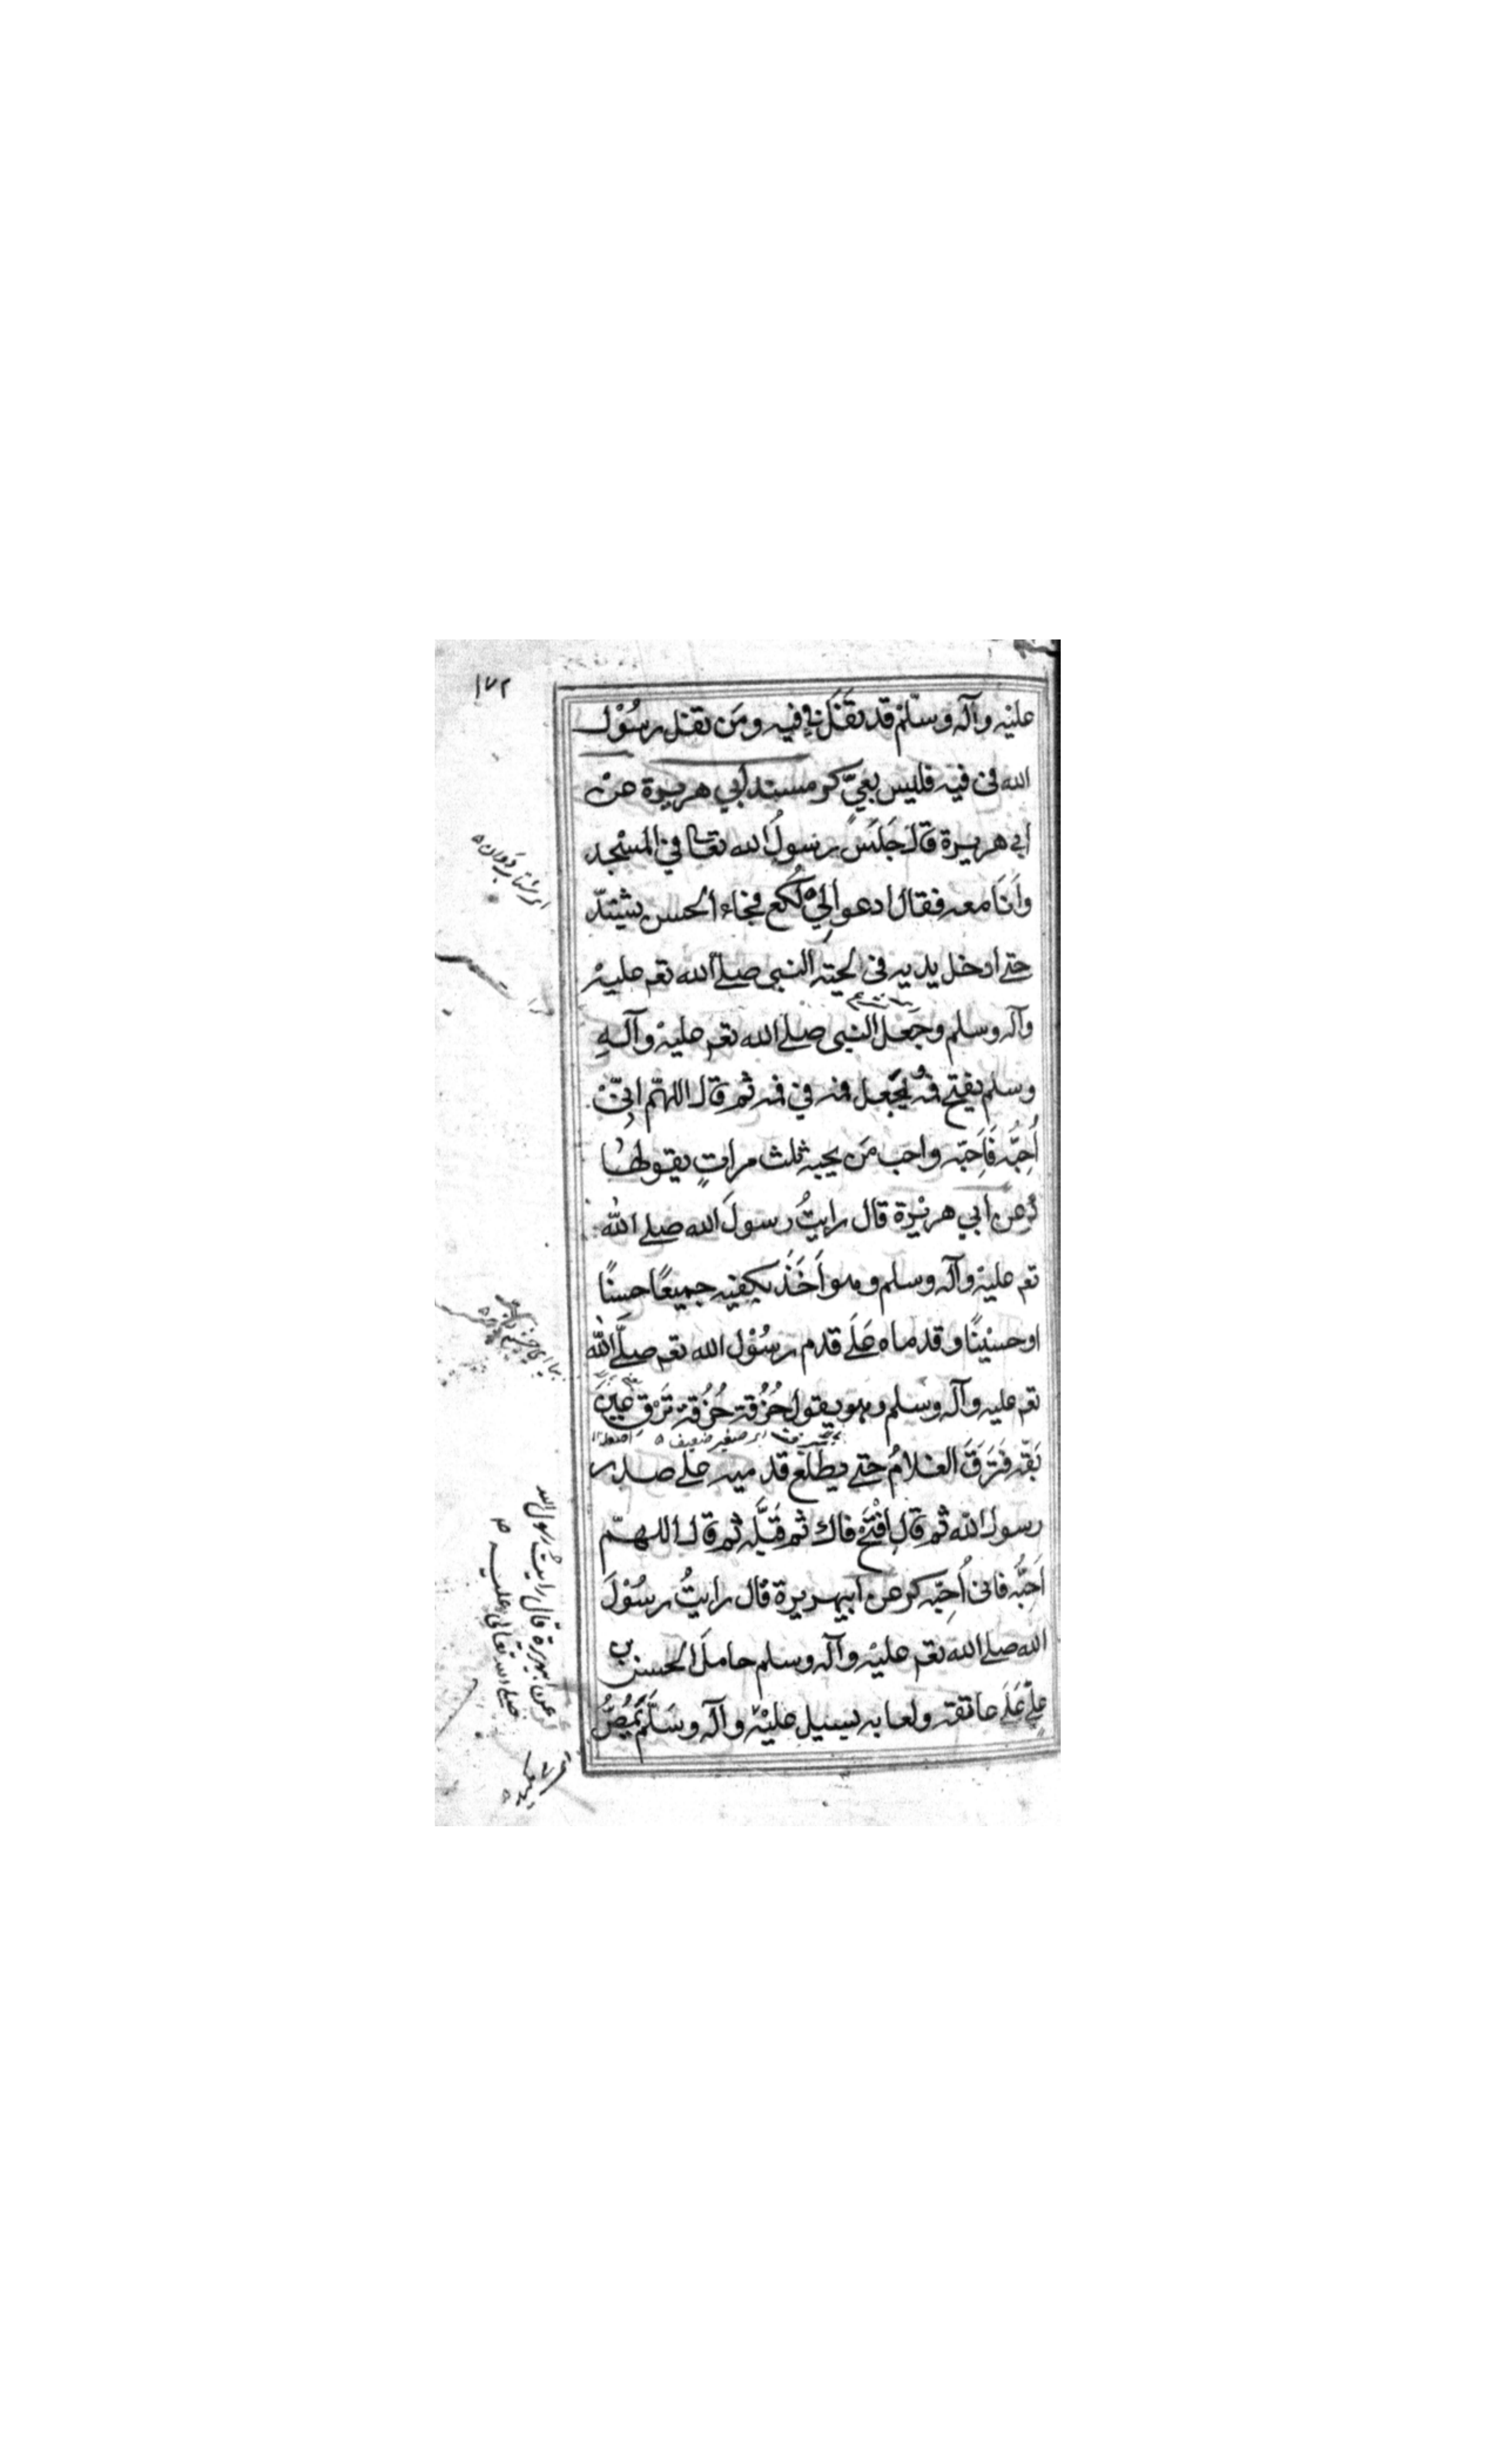 ١٧٢
عليه وآله وسلم قد تفل في فيه ومن تفل رسول
الله فى فيه فليس بعيّ كر مسند أبي هريرة عن
أبي هريرة قال جَلَسَ رسولُ الله تعالى في المسْجد
وأنَا معه فقال ادعوا لِي لُكَع فجاء الحسن يشتدّ
حتے أدخل يديه فى لحيته النبى صلے الله تعـ عليه
وآله وسلم وجَعَل النبى صلے الله تعـ عليه وآلهِ
وسلم يفتح فمه يجعل فمه في فمه ثم قال اللهمّ إنّى
أُحِبُّه فَأَحِبّه واحب مَن يحبه ثلث مراتٍ يقولها
كر عن أبي هريْرة قال رايتُ رسولَ الله صلے الله
تعـ عليْه وآله وسلم وهو أَخَذَ بكفيه جميعًا حسنًا
او حسيْنًا وقدماه عَلَے قدم رسُوْل الله تعـ صلّے الله
تعـ عليه وآله وسلم وهو يقول حُزُقّة حُزُقّة تَرَقّ عَيْنَ
اى صغير ضعيف
بَقّه فتَرَقَّ الغلامُ حتے يطلع قدميه علے صدر
رسول الله ثم قال افْتَحْ فاك ثم قَبَّله ثم قال اللهمّ
أَحِبُّه فانى أُحِبّه كر عن ابيهريرة قال رايتُ رسُوْلَ
الله صلے الله تعـ عليْه وآله وسلم حاملَ الحسن بن
عليّ عَلَے عاتقه ولعابه يسيل عليْه وآله وسَلَّم يَمُصُّ
اى شتاب دوان
عن ابيهريرة قال رايتُ رسول الله
صلے الله تعالى عليه